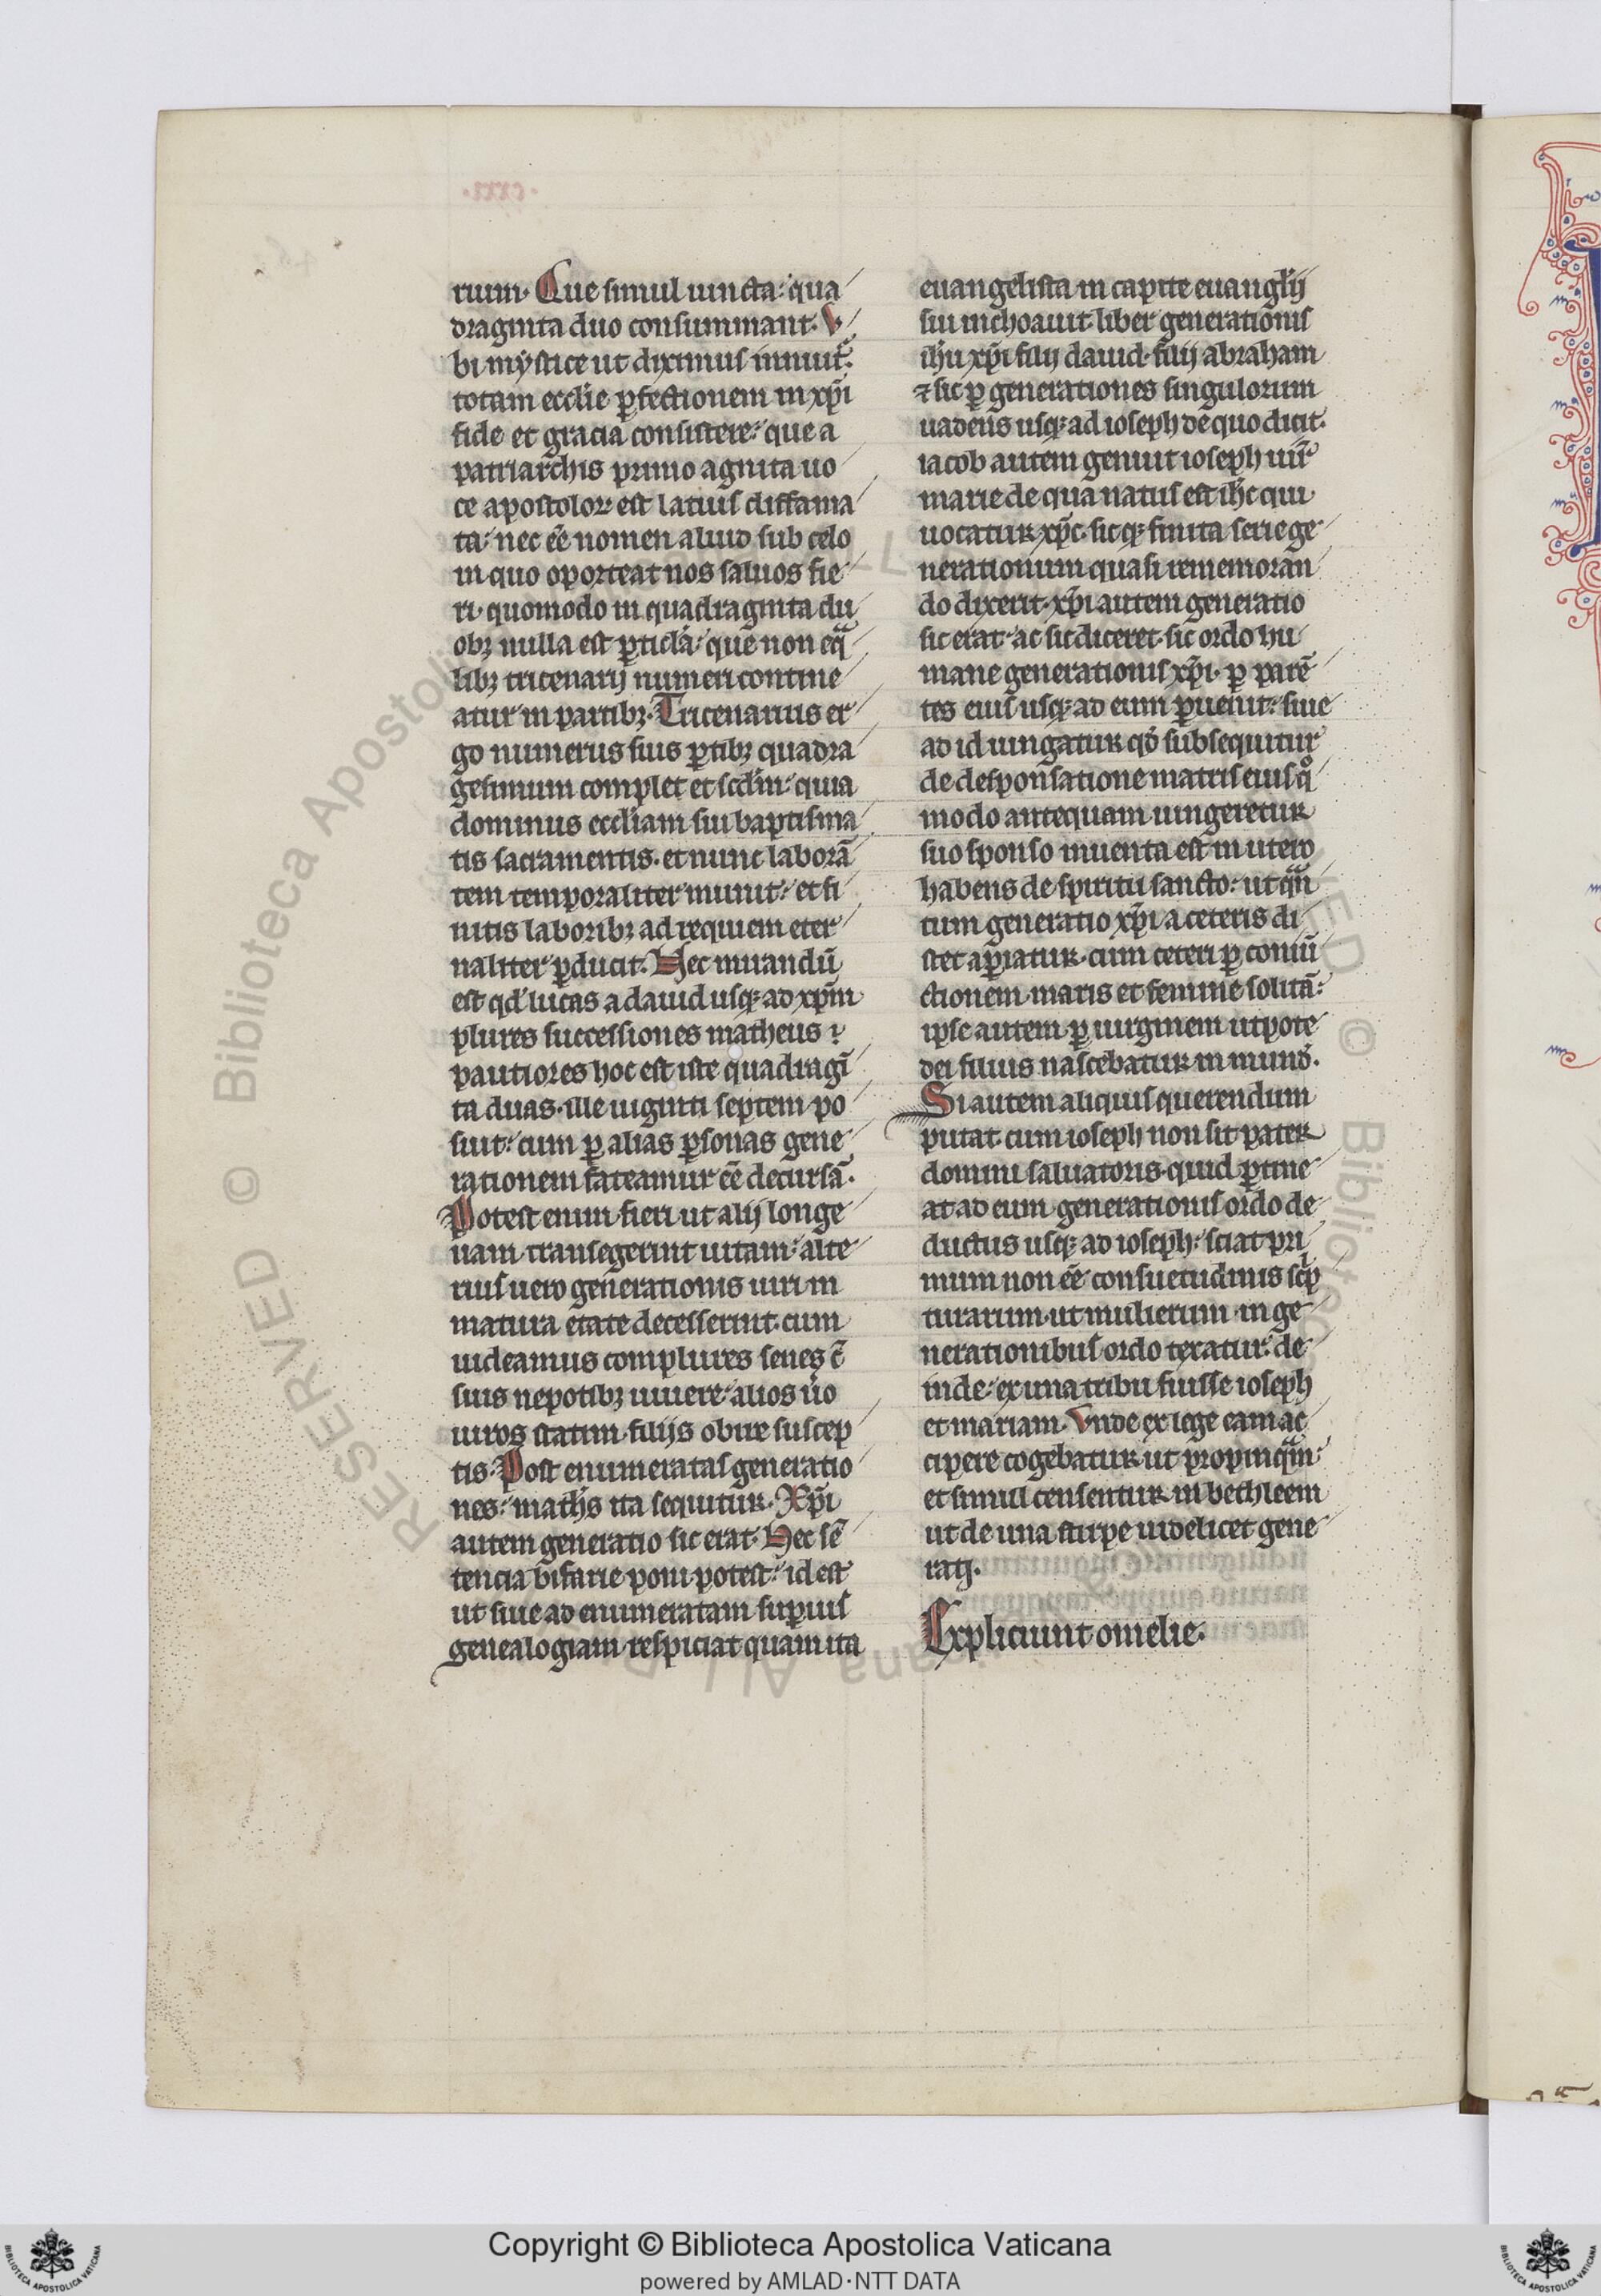 rum. Que simul iuncta: qua
draginta duo consummant. V
bi mystice ut diximus innuit᷑:
totam ecclie ꝑfectionem in xp̄i
fide et gracia consistere: que a
patriarchis primo agnita uo
ce apostoloꝝ est latius diffama
ta: nec eē nomen aliud sub celo
in quo oporteat nos saluos fie
ri. quomodo in quadraginta du
obꝫ nulla est ꝑticla: que non eqͣ
libꝫ tricenarij numeri contine
atur in partibꝫ. Tricenarius er
go numerus suis ꝑtibꝫ quadra
gesimum complet et scd̄m: quia
dominus eccliam sui baptisma
tis sacramentis. et nunc laborā
tem temporaliter munit: et fi
nitis laboribꝫ ad requiem eter
naliter ꝑducit. Hec mirandū
est qd' lucas a dauid usqꝫ ad xp̄m
plures successiones matheus
pautiores hoc est iste quadragī
ta duas. ille uiginti septem po
suit: cum ꝑ alias ꝑsonas gene
rationem fateamur eē decursā.
Potest enim fieri ut alij longe
uam transegerint uitam: alte
rius uero generationis uiri in
matura etate decesserint. cum
uideamus complures senes c̄
suis nepotibꝫ uiuere: alios ūo
uiros statim filijs obire suscep
tis. Post enumeratas generatio
nes: math's ita sequitur. Xp̄i
autem generatio sic erat. Hec sē
tencia bifarie poni potest: id est
ut siue ad enumeratam suꝑius
genealogiam respiciat quam ita
euangelista in capite euanglij
sui inchoauit. liber generationis
ih̄u xp̄i filij dauid. filij abraham
⁊ sic ꝑ generationes singulorum
uadens usqꝫ ad ioseph de quo dicit.
iacob autem genuit ioseph uir̄
marie de qua natus est ih̄c qui
uocatur xp̄c. sicqꝫ finita serie ge
nerationum quasi rememoran
do dixerit. xp̄i autem generatio
sic erat: ac si diceret. sic ordo hu
mane generationis xp̄i. ꝑ parē
tes eius usqꝫ ad eum ꝑuenit: siue
ad id iungatur qd̓ subsequitur
de desponsatione matris eius qͦ
modo antequam iungeretur
suo sponso inuenta est in utero
habens de spiritu sancto: ut qͣn
tum generatio xp̄i a ceteris di
stet aꝑiatur. cum ceteri ꝑ coniū
ctionem maris et femine solitā:
ipse autem ꝑ uirginem utpote
dei filius nascebatur in mund̓.
Si autem aliquis querendum
putat. cum ioseph non sit pater
domini saluatoris. quid ꝑtine
at ad eum generationis ordo de
ductus usqꝫ ad ioseph: sciat pri
mum non eē consuetudinis scͥp
turarum. ut mulierum in ge
nerationibus ordo texatur: de
inde: ex una tribu fuisse ioseph
et mariam. Vnde ex lege eam ac
cipere cogebatur ut propinqͣm:
et simul censentur in bethleem
ut de una stirpe uidelicet gene
rati.
Expliciunt omelie.
Copyright © Biblioteca Apostolica Vaticana
powered by AMLAD·NTT DATA